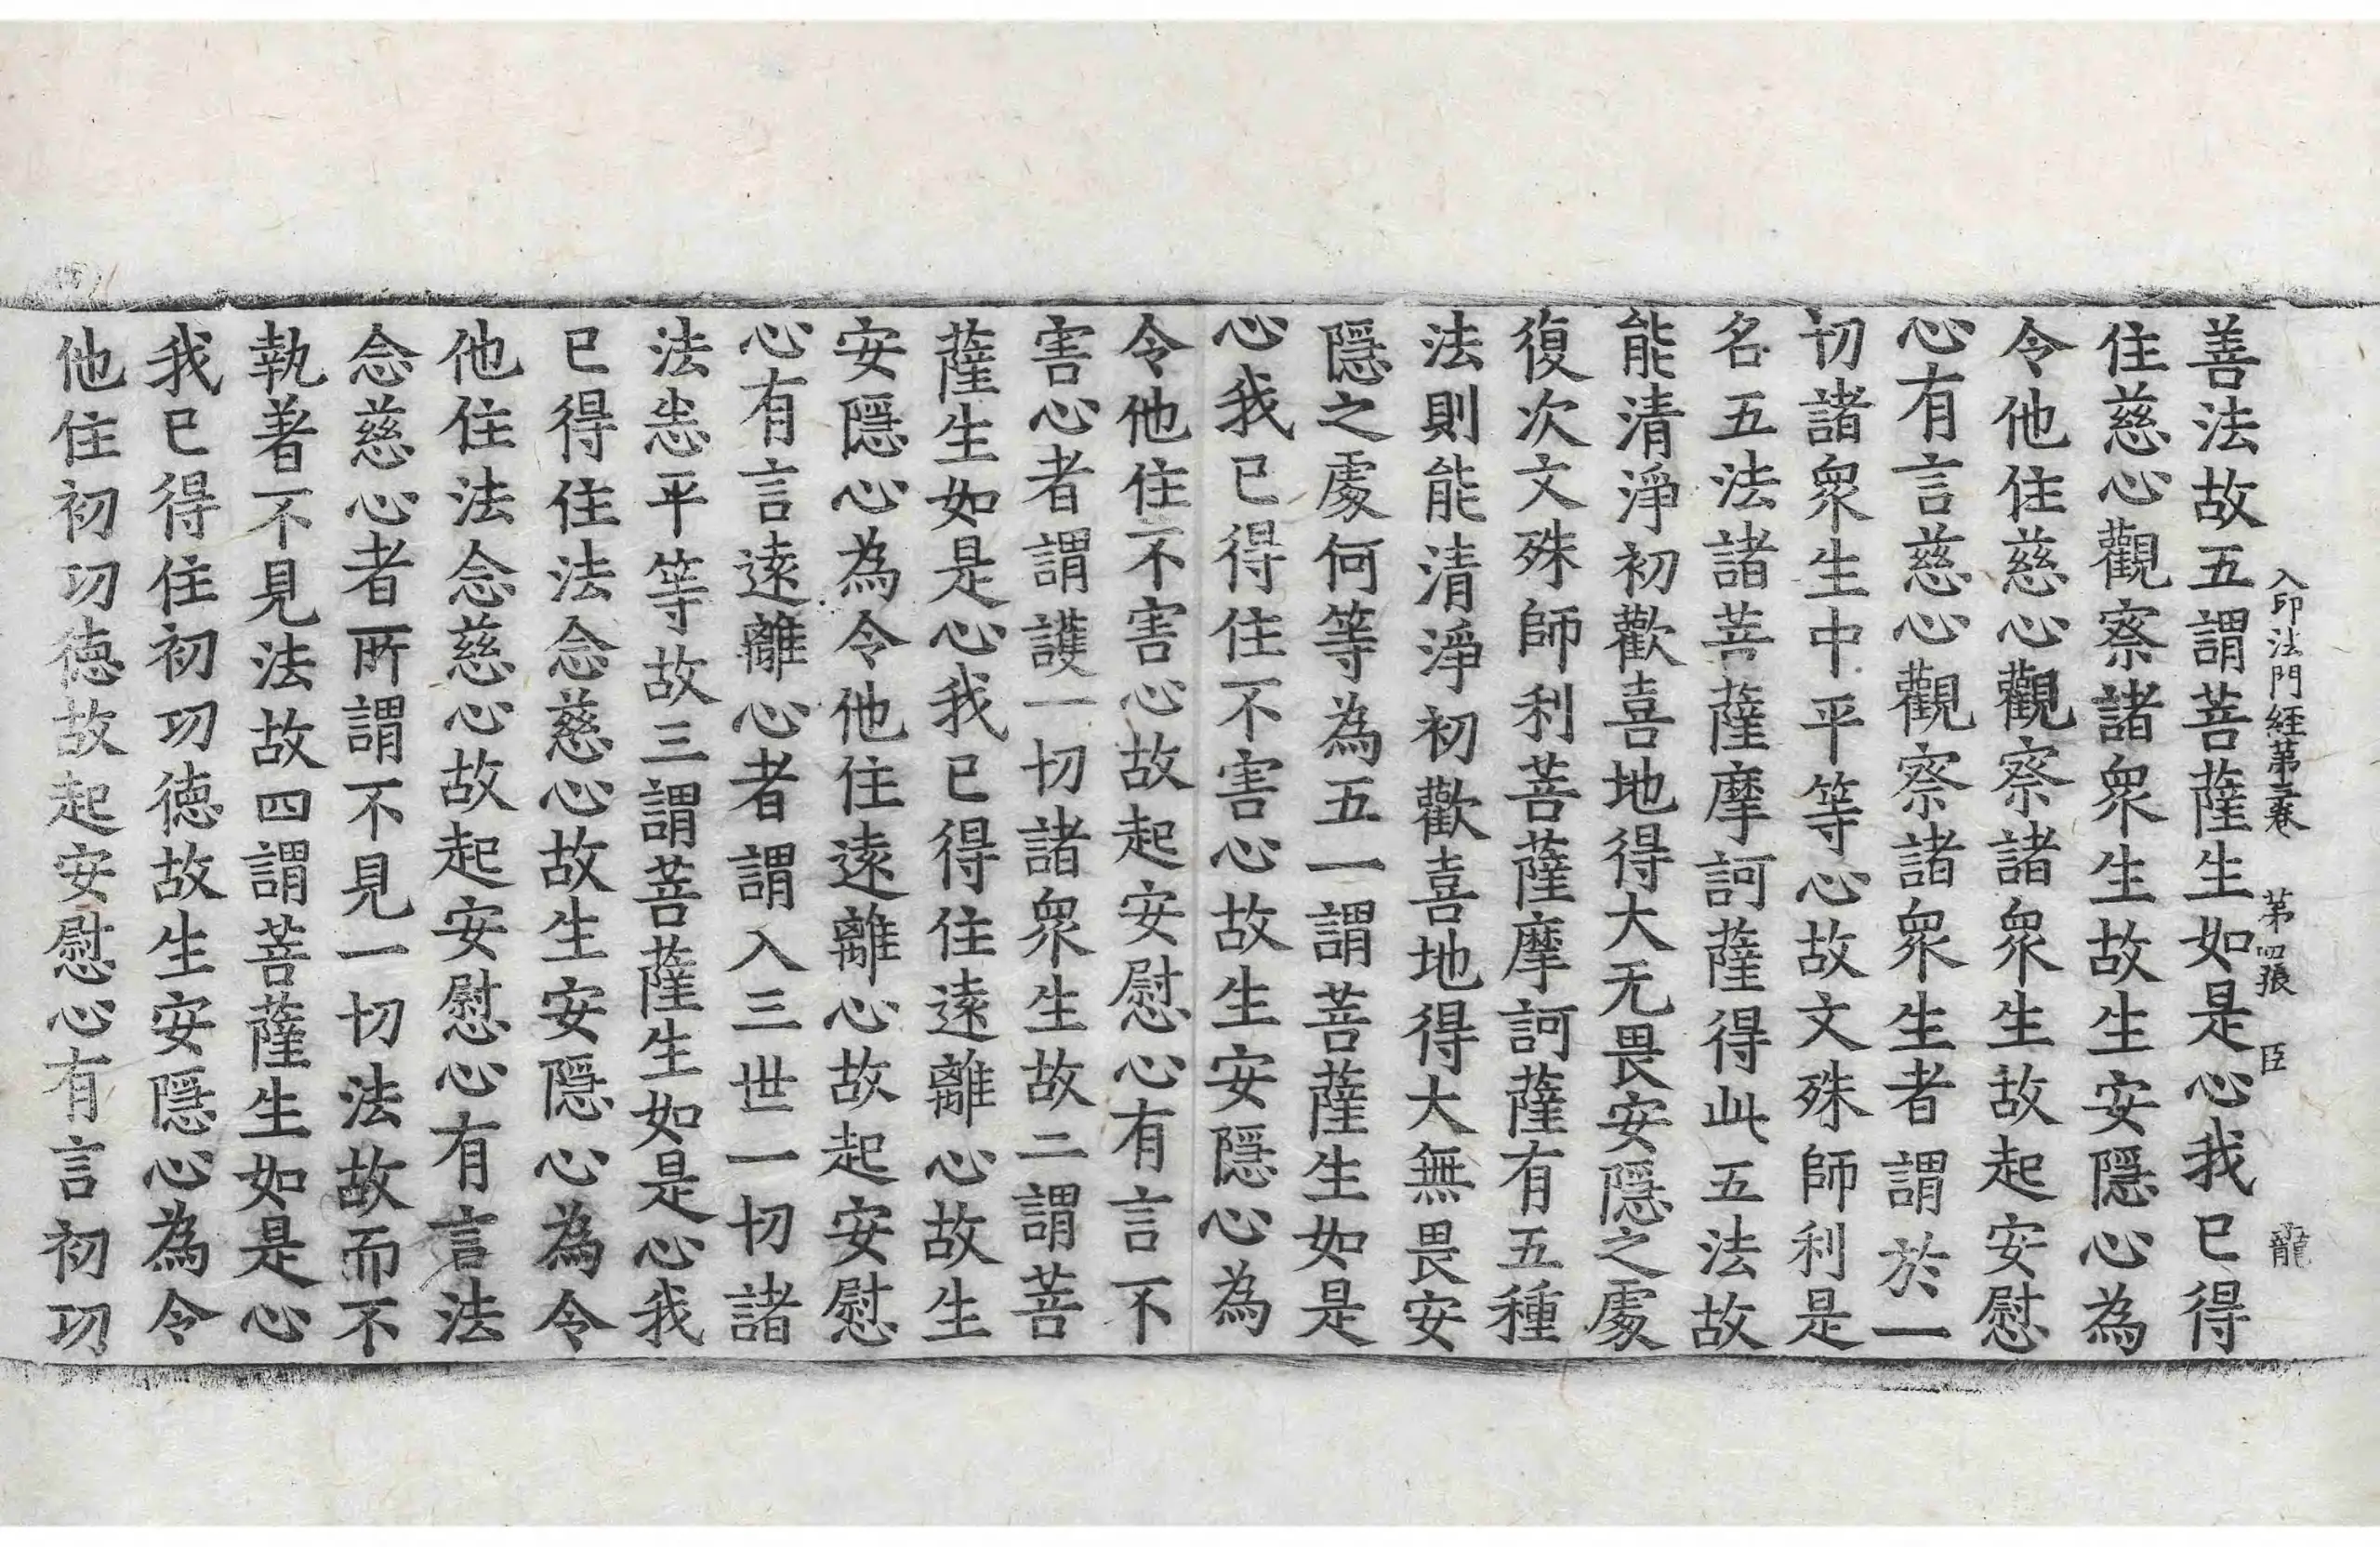 入印法門經第三卷 第四張 臣 龍
善法故五謂菩薩生如是心我已得
住慈心觀察諸衆生故生安隱心為
令他住慈心觀察諸衆生故起安慰
心有言慈心觀察諸衆生者謂於一
切諸衆生中平等心故文殊師利是
名五法諸菩薩摩訶薩得此五法故
能清淨初歡喜地得大无畏安隱之處
復次文殊師利菩薩摩訶薩有五種
法則能清淨初歡喜地得大無畏安
隱之處何等為五一謂菩薩生如是
心我已得住不害心故生安隱心為
令他住不害心故起安慰心有言不
害心者謂護一切諸衆生故二謂菩
薩生如是心我已得住遠離心故生
安隱心為令他住遠離心故起安慰
心有言遠離心者謂入三世一切諸
法恙平等故三謂菩薩生如是心我
已得住法念慈心故生安隱心為令
他住法念慈心故起安慰心有言法
念慈心者所謂不見一切法故而不
執著不見法故四謂菩薩生如是心
我已得住初功德故生安隱心為令
他住初功德故起安慰心有言初功